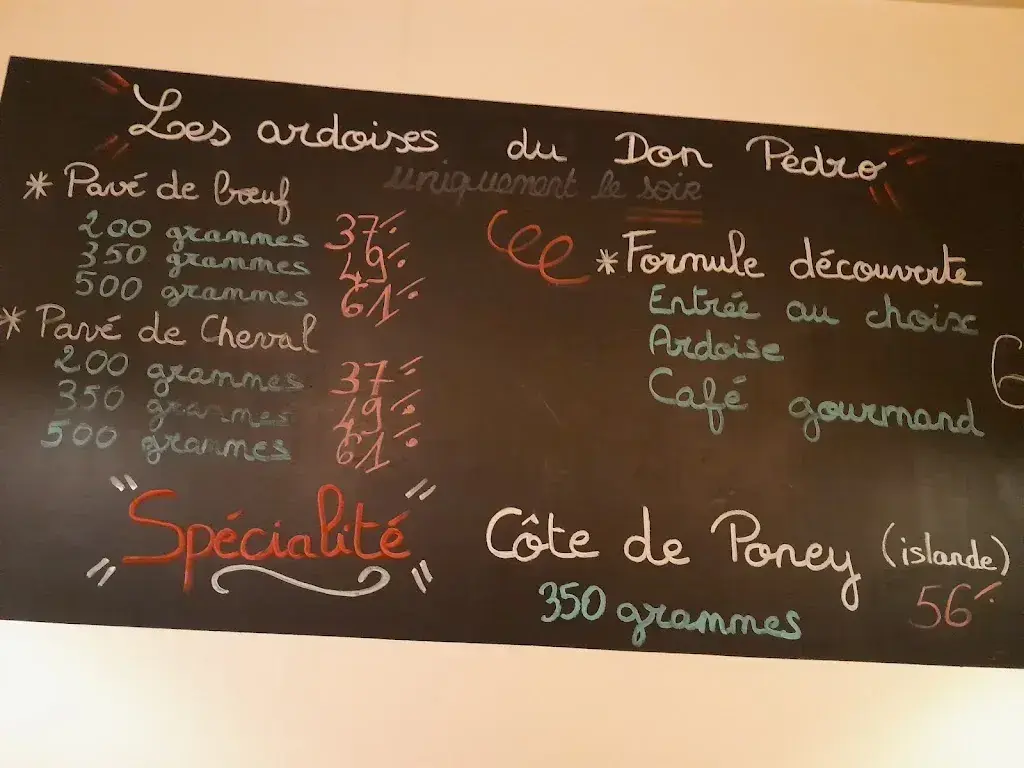 Les ardoises du Don Pedro
uniquement le soir
* Pavé de bœuf
200 grammes 37.-
350 grammes 49.-
500 grammes 61.-
* Pavé de Cheval
200 grammes 37.-
350 grammes 49.-
500 grammes 61.-
* Formule découverte
Entrée au choix
Ardoise
Café gourmand
Spécialité
Côte de Poney (islande)
350 grammes 56.-